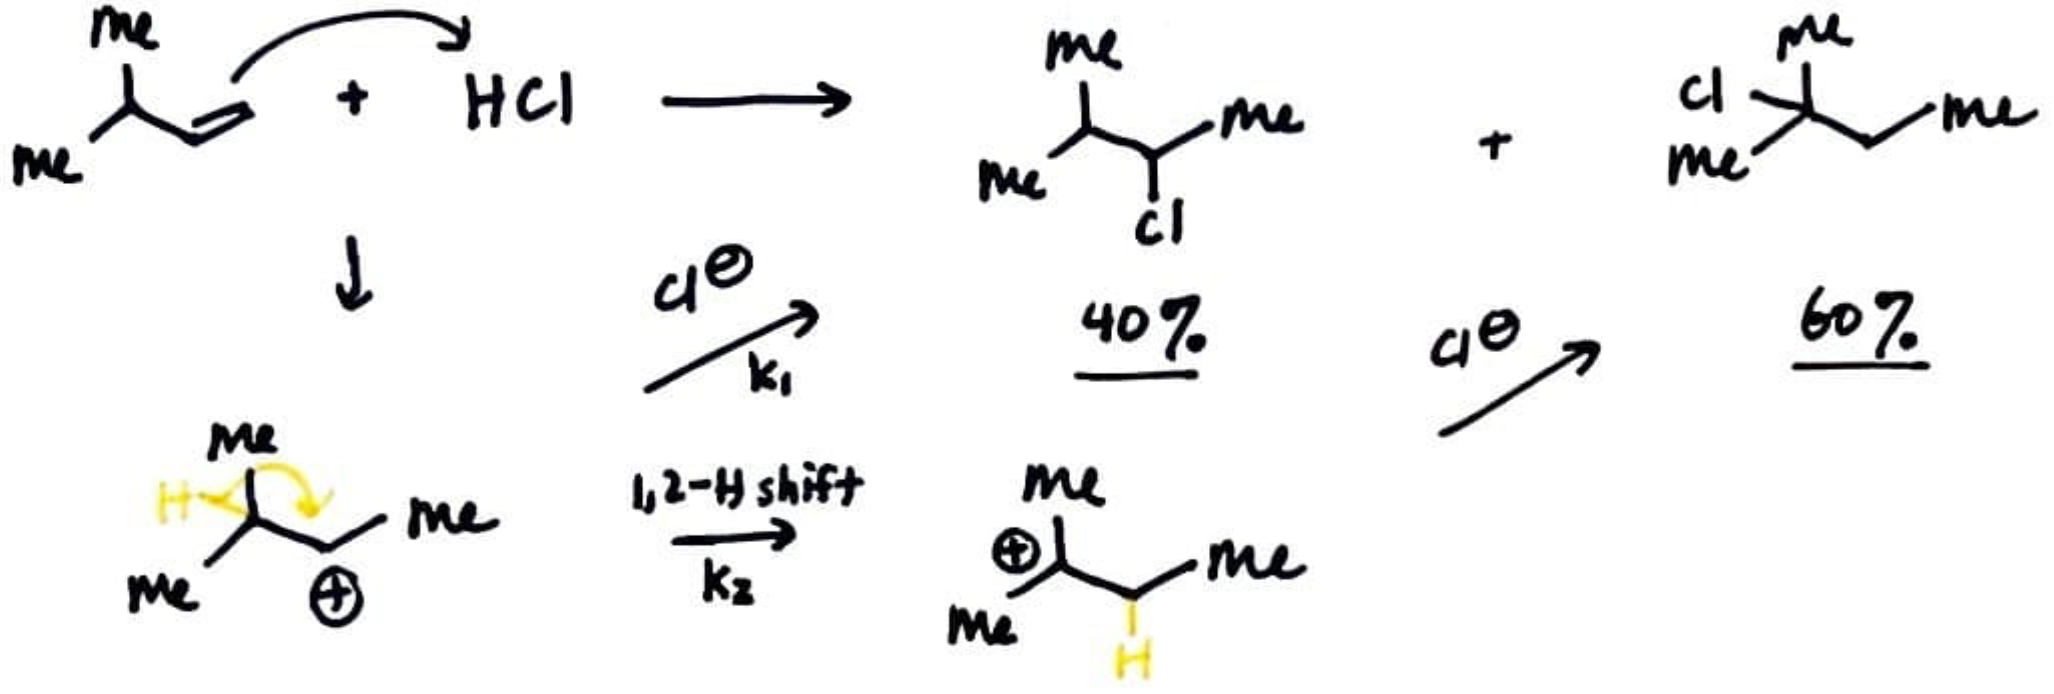 Me
Me
+
HCl
Me
Me
Me
Cl
+
Cl
Me
Me
Me
Cl⊖
k₁
40%
Cl⊖
60%
Me
H
Me
Me
⊕
1,2-H shift
k₂
Me
⊕
Me
Me
H